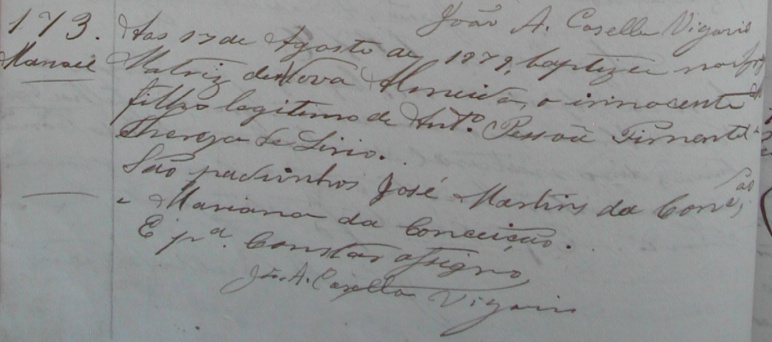 João A. Casella Vigario
173.
Manoel
Aos 17 de Agosto de 1879, baptizei
Matriz de Nova Almeida, o innocente
filho legitimo de Antº. Pessoa Pimentel
Thereza de Lirio.
São padrinhos José Martins da Concão,
e Mariana da Conceição.
E pª. constar assigno
João A. Casella Vigario